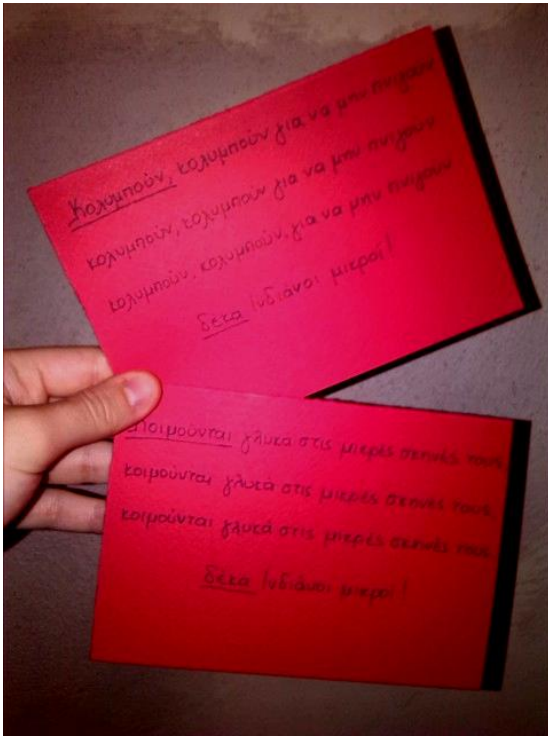 Κολυμπούν, κολυμπούν για να μην πνιγούν
κολυμπούν, κολυμπούν για να μην πνιγούν
κολυμπούν, κολυμπούν, για να μην πνιγούν
δέκα Ινδιάνοι μικροί!
Κοιμούνται γλυκά στις μικρές σκηνές τους
κοιμούνται γλυκά στις μικρές σκηνές τους
κοιμούνται γλυκά στις μικρές σκηνές τους
δέκα Ινδιάνοι μικροί!